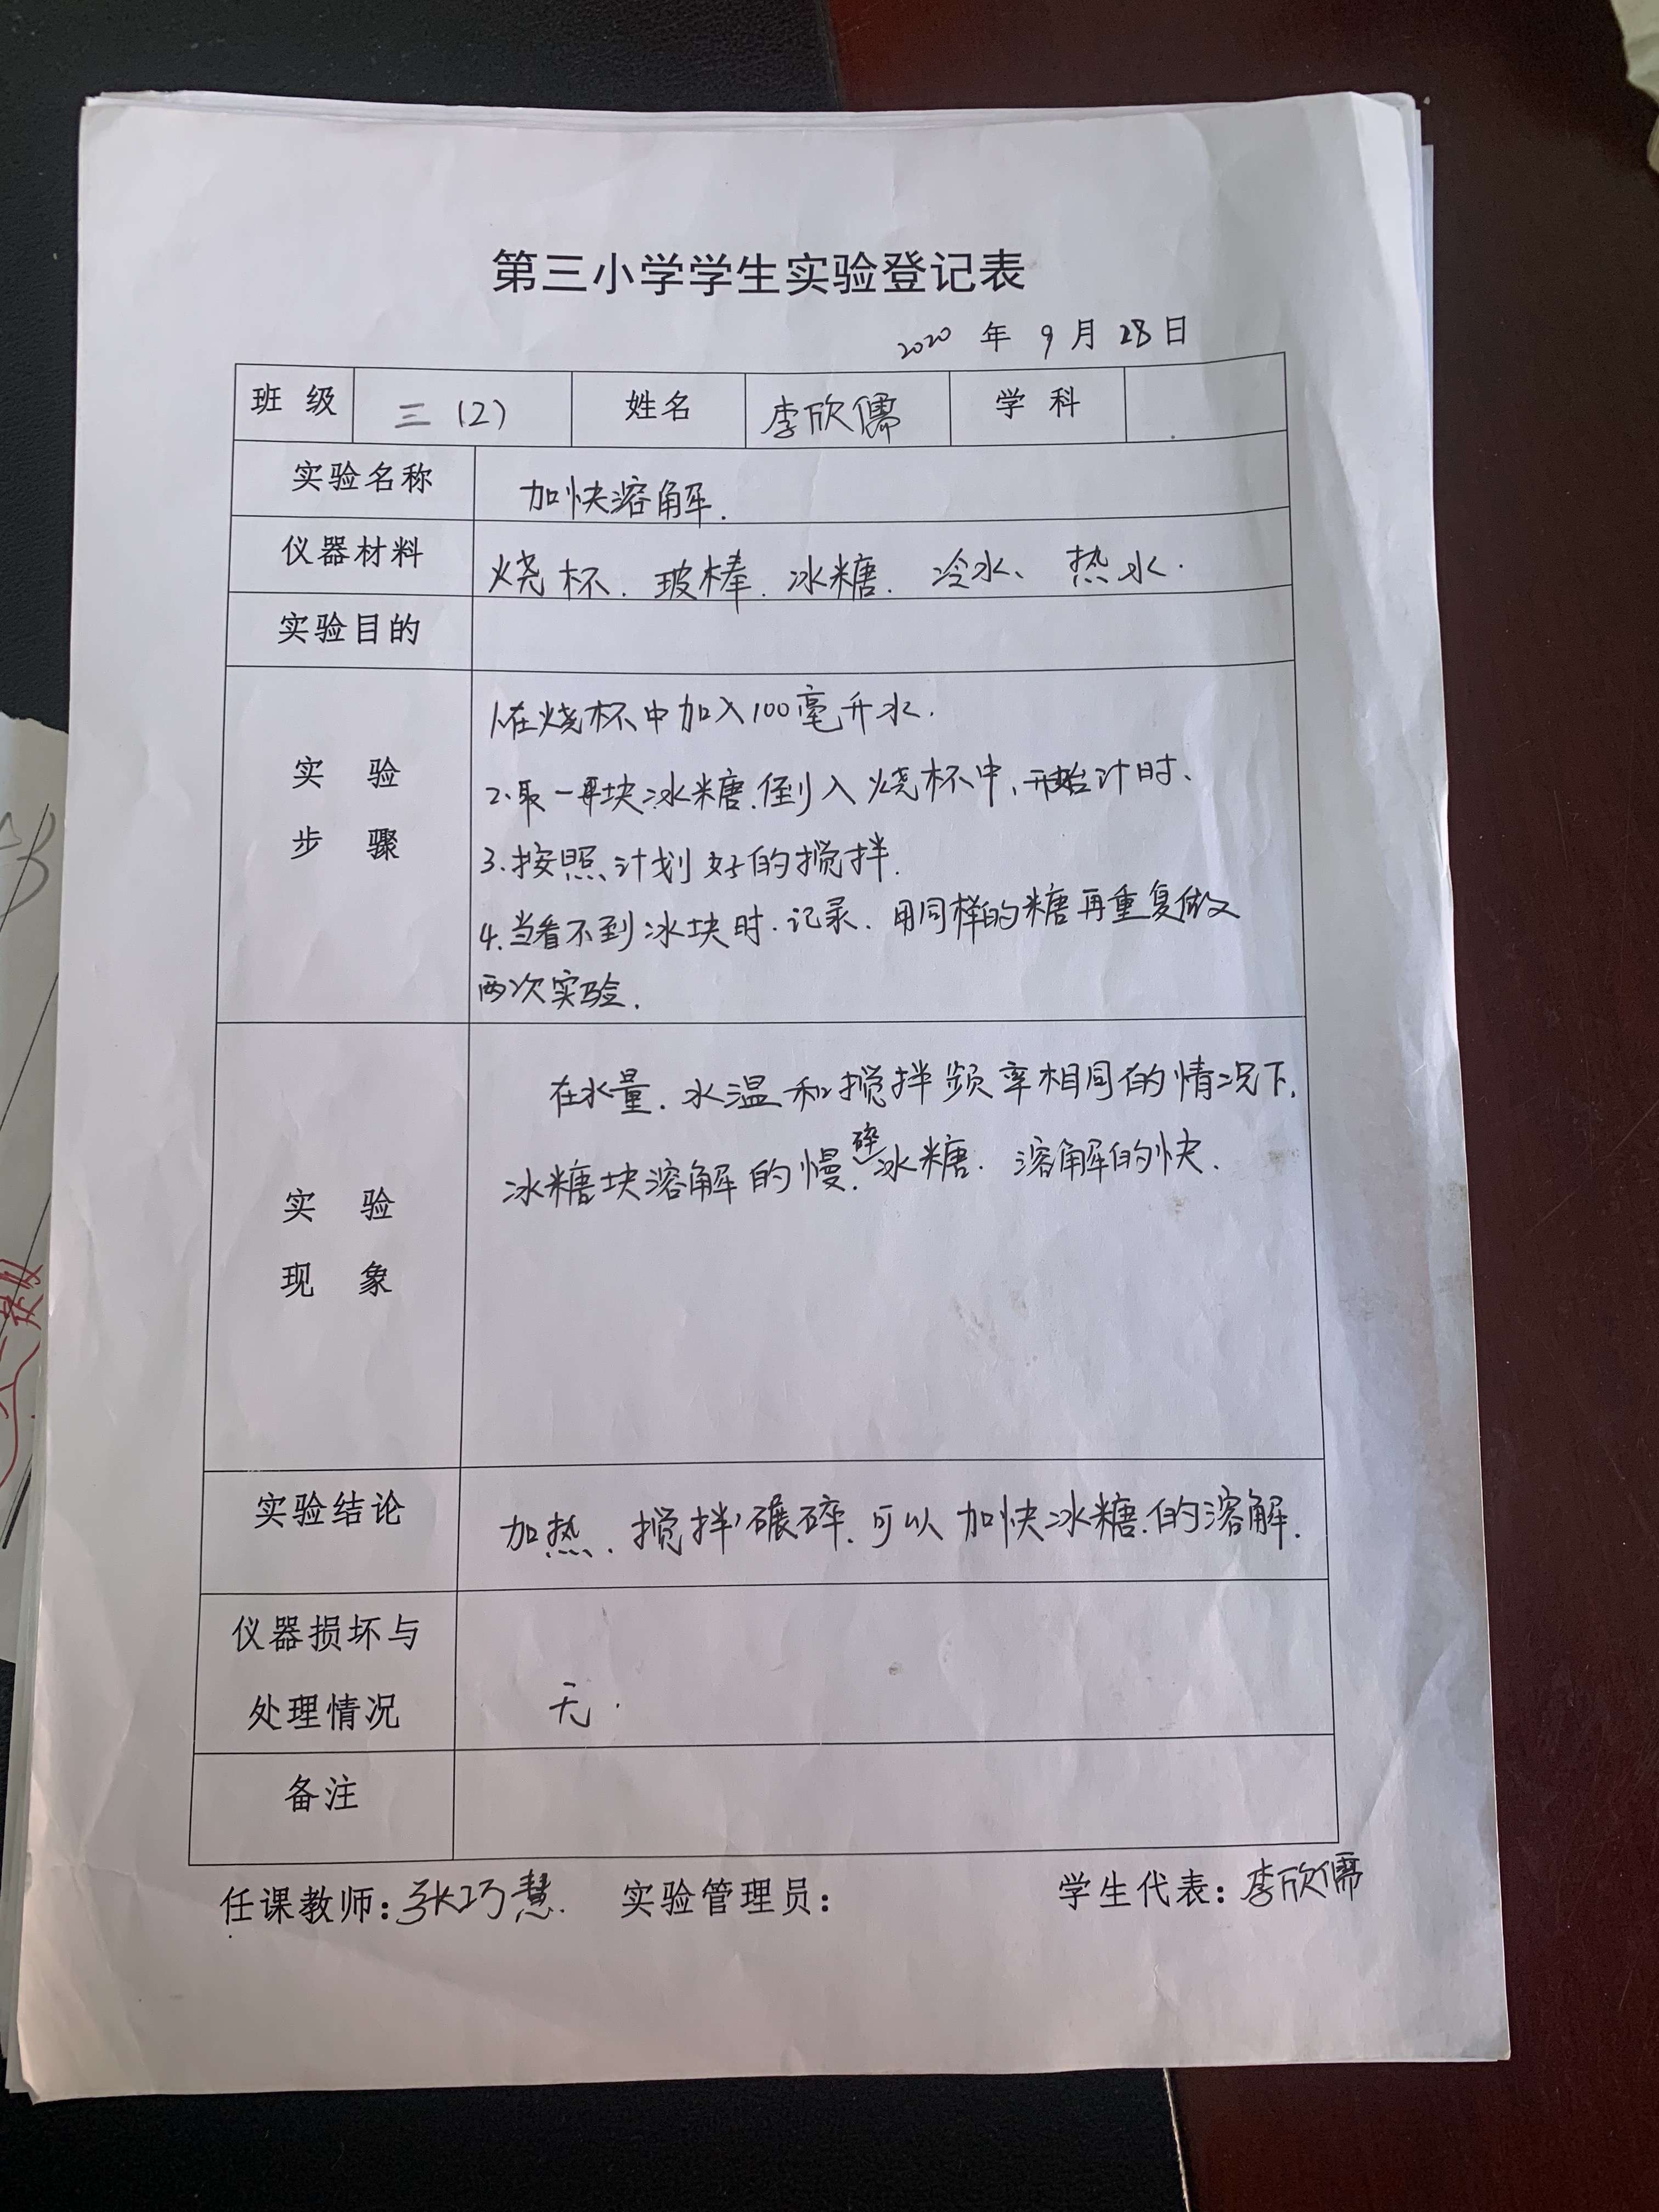 第三小学学生实验登记表
2020 年 9 月 28 日
班 级 三（2） 姓名 李欣儒 学 科
实验名称 加快溶解.
仪器材料 烧杯、玻棒、冰糖、冷水、热水.
实验目的
实 验
步 骤
1.在烧杯中加入100毫升水.
2.取一块冰糖.倒入烧杯中、开始计时、
3.按照计划好的搅拌.
4.当看不到冰块时.记录、用同样的糖再重复做
两次实验.
实 验
现 象
在水量.水温和搅拌频率相同的情况下.
冰糖块溶解的慢.碎冰糖.溶解的快.
实验结论 加热、搅拌,碾碎.可以加快冰糖.的溶解.
仪器损坏与
处理情况 无.
备注
任课教师：张巧慧. 实验管理员： 学生代表：李欣儒